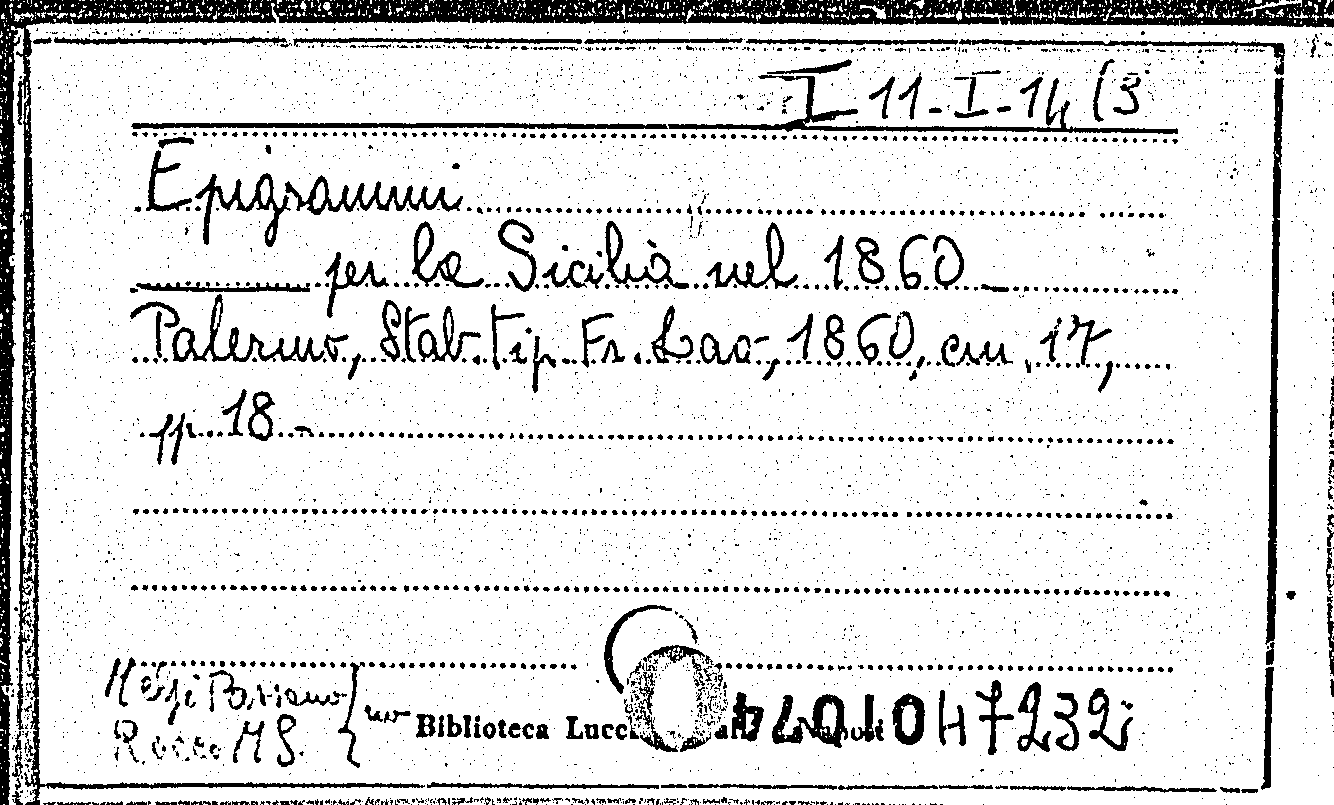 I 11-I-14 (3
Epigrammi
per la Sicilia nel 1860
Palermo, Stab. Tip. Fr. Lao, 1860, cm. 17,
pp. 18 -
Melzi Passano } no
Rocco M S.
Biblioteca Lucc